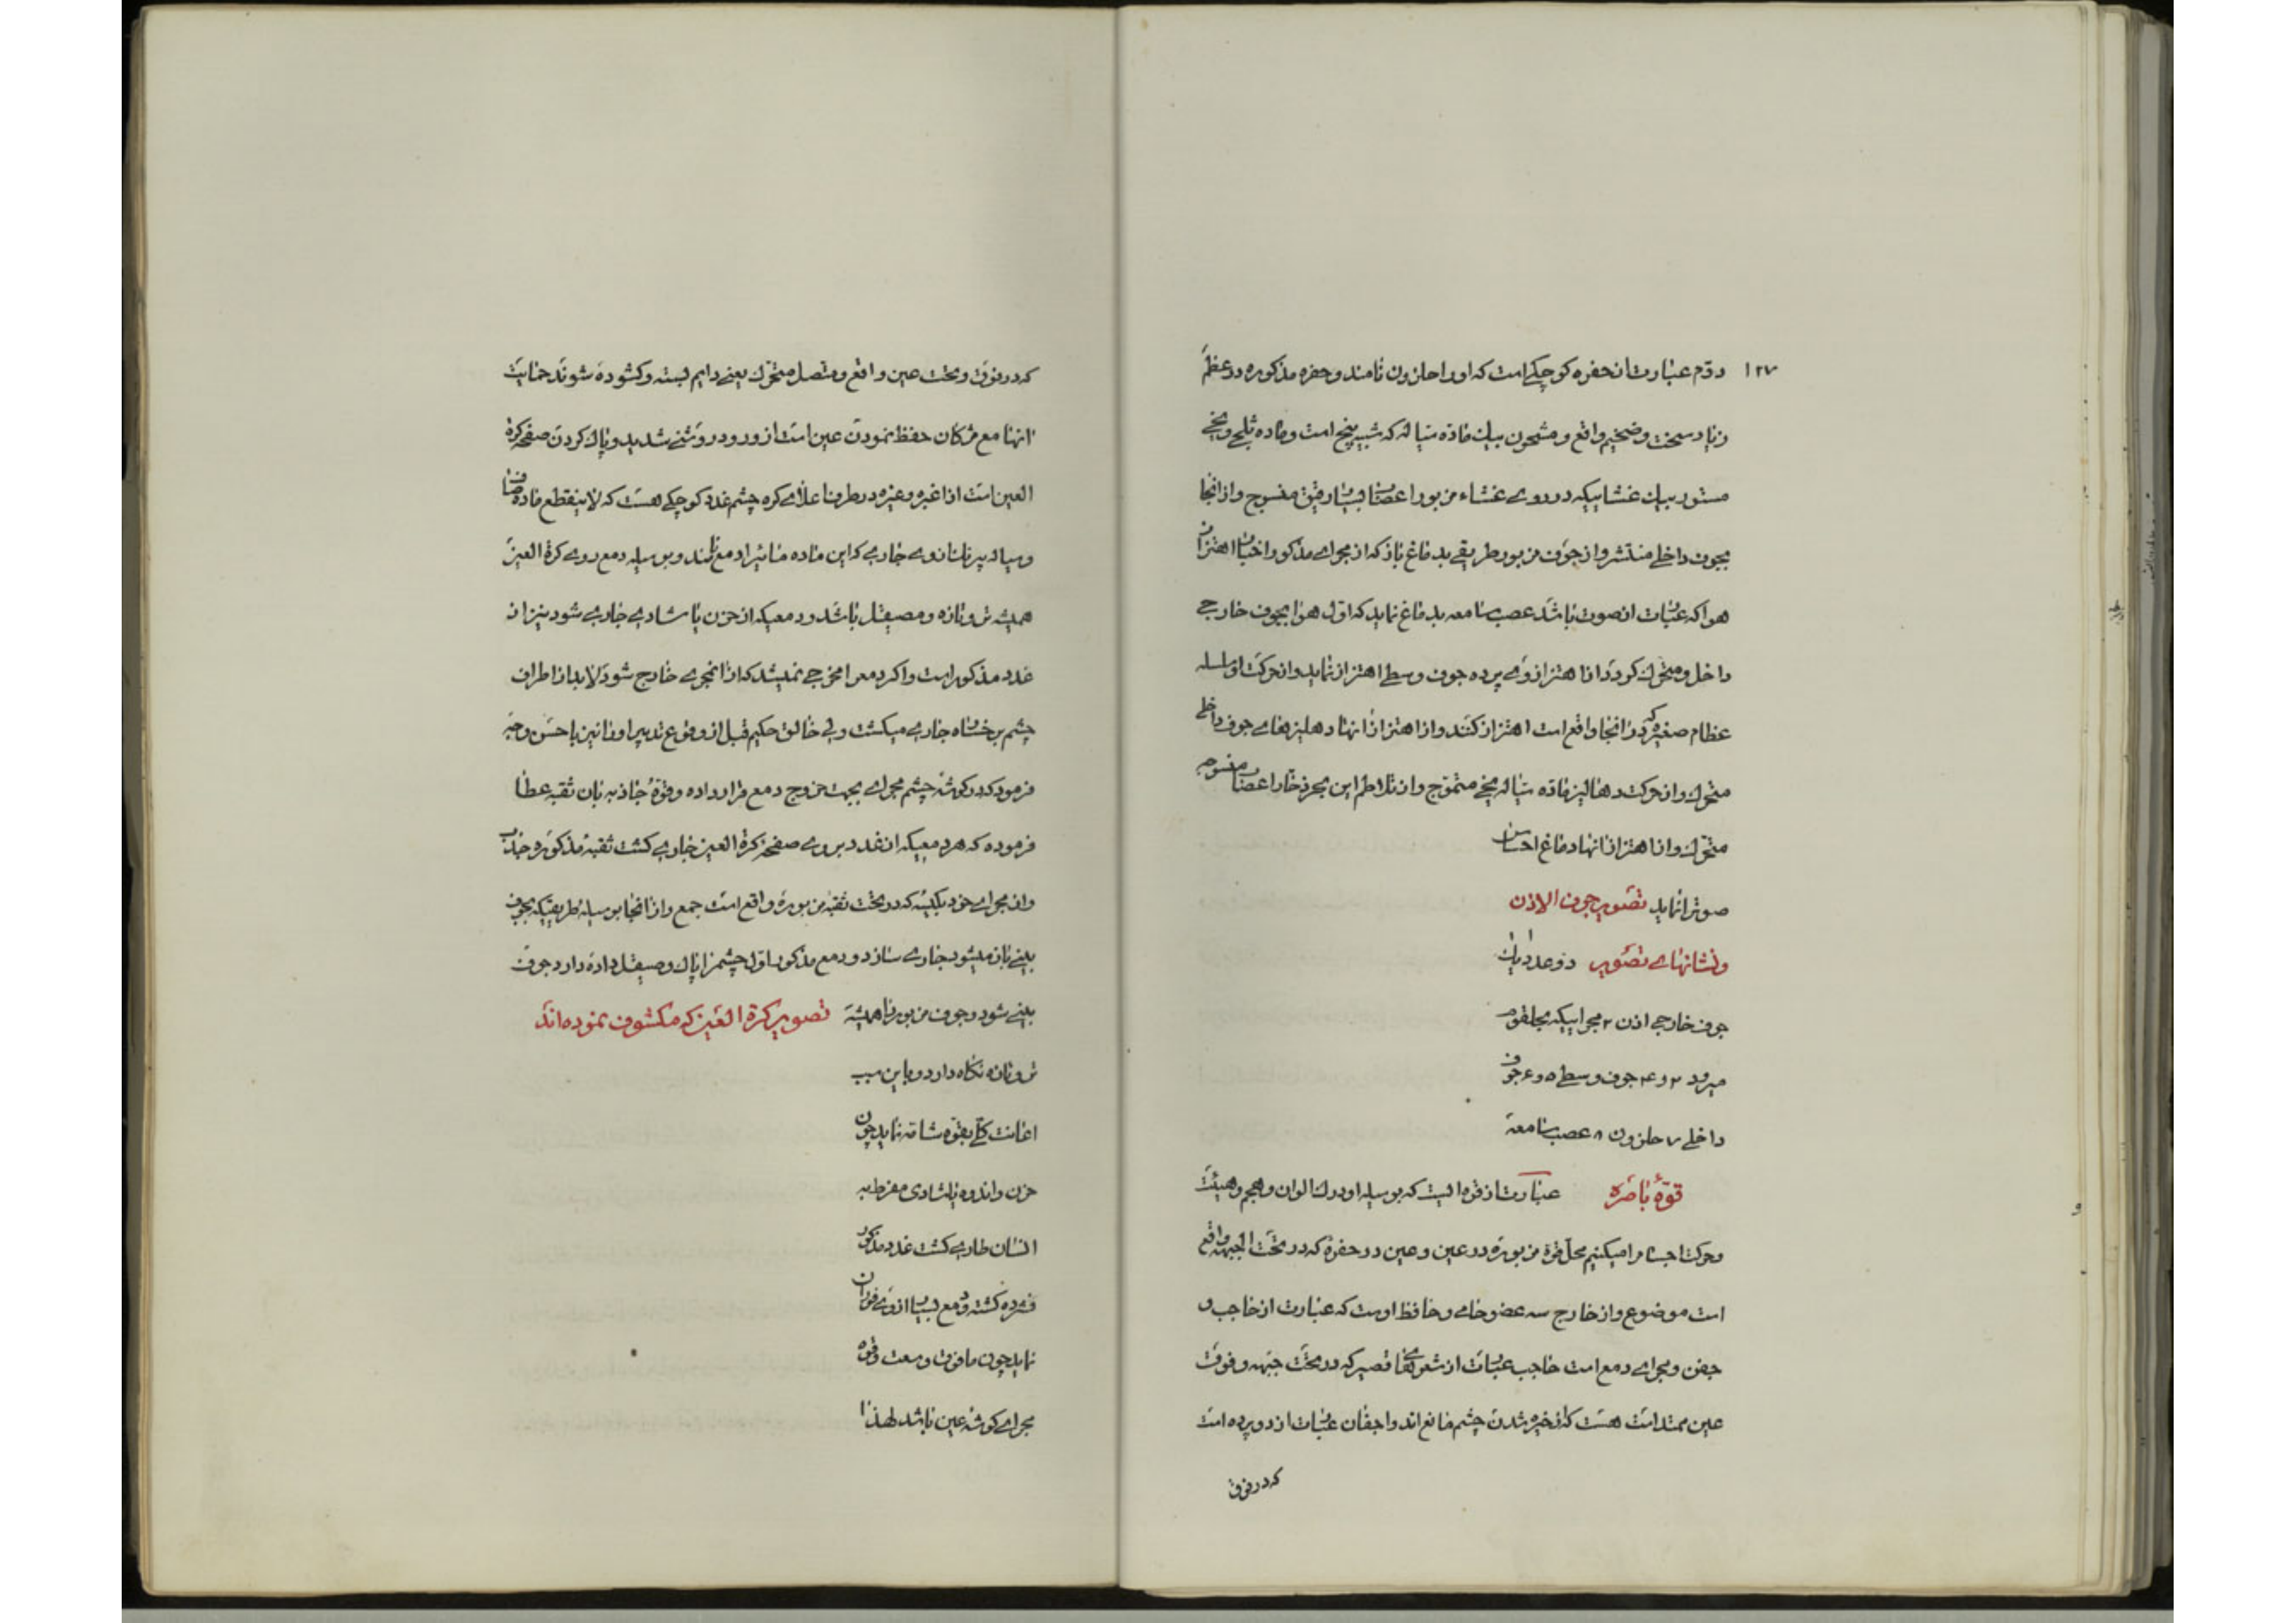 ۱۲۷
دوّم عبارت از حفره کوچکی است که او را حلزون نامند و حفره مذکوره در عظم
زیاد سخت و ضخیم واقع و مشحون بیک ماده سیاله که شبیه بیخ است و ماده ثلجی و یخی
مستور بیک غشاییکه در روی غشاء مزبور اعصاب بسیار رقیق منسوج و از انجا
بجوف داخلی منتشر و از جوف مزبور طریقی بدماغ باز که از مجرای مذکور اهتزاز
هوا که عبارت از صوت باشد عصب سامعه بدماغ نماید که اول هوا بجوف خارجی
داخل و متحرک کردد از اهتزاز وی پرده جوف وسطی اهتزاز نماید و از حرکت او سلسله
عظام صغیره که در انجا واقع است اهتزاز کنند و از اهتزاز انها دهلیزهای جوف داخلی
متحرک و از حرکت دهالیز ماده سیاله یخی متموّج و از تلاطم این بحر ذخار اعصاب منسوجه
متحرک و از اهتزاز انها دماغ احساس
صوترا نماید تصویر جوف الاذن
و نشانهای تصویر دو عدد یک
جوف خارجی اذن ۲ مجراییکه بحلقوم
میرود ۳ و ۴ جوف وسطی ۵ و ۶ جوف
داخلی ۷ حلزون ۸ عصب سامعة
قوّهٔ باصره عبارت از قوه‌ایست که بوسیله او درک الوان و حجم و هیئت
و حرکت اجسام را میکنیم محل قوة مزبوره در عین و عین در حفرهٔ که در تحت الجبهه واقع
است موضوع و از خارج سه عضو حامی و حافظ اوست که عبارت از حاجب و
جفن و مجرای دمع است حاجب عبارت از شعرهای قصیر که در تحت جبهه و فوقت
عین ممتد است هست که از خیره شدن چشم مانع اند و اجفان عبارت از دو پرده است
که در فوق
که در فوق و تحت عین واقع و متصل متحرک یعنی دایم بسته و کشوده شوند حمایت
انها مع مژکان حفظ نمودن عین است از ورود روشنی شدید و پاک کردن صفحه کرة
العین است از اغبره و غیره در طرف اعلای کره چشم غدد کوچکی هست که لاینقطع ماده صاف
و سیاله بیرنک از وی جاری که این ماده مائیرا دمع نامند و بوسیله دمع روی کرة العین
همیشه تر و تازه و مصیقل باشد و دمعیکه از حزن یا شادی جاری شود نیز از
غدد مذکور است و اکر دمع را مخرجی نمیشد که از انمجری خارج شود لابد از اطراف
چشم بر خسناه جاری میکشت ولی خالق حکیم قبل از وقوع تدبیر او را نیز باحسن وجه
فرمود که در کوشهٔ چشم مجرای بجهت خروج دمع قرار داده و قوهٔ جاذبه بان ثقبه عطا
فرموده که هر دمعیکه از غدد بروی صفحهٔ کرة العین جاری کشت ثقبهٔ مذکوره جذب
و از مجرای خود بکیسهٔ که در تحت ثقبه مزبوره واقع است جمع و از انجا بوسیله طریقیکه بجوف
بینی باز میشود جاری سازد و دمع مذکور اول چشمرا پاک و صیقل داده دارد جوف
بینی شود و جوف مزبور را همیشه تصویر کرة العین که مکشوف نموده‌اند
تر و تازه نکاه دارد و باین سبب
اعانت کلی بقوه شامّه نماید چون
حزن و اندوه یا شادی مفرط به
انسان طاری کشت غدد مذکور
فشرده کشته و دمع بسیار از وی فوران
نماید چون مافوق وسعت و قوه
مجرای کوشه عین باشد لهذا